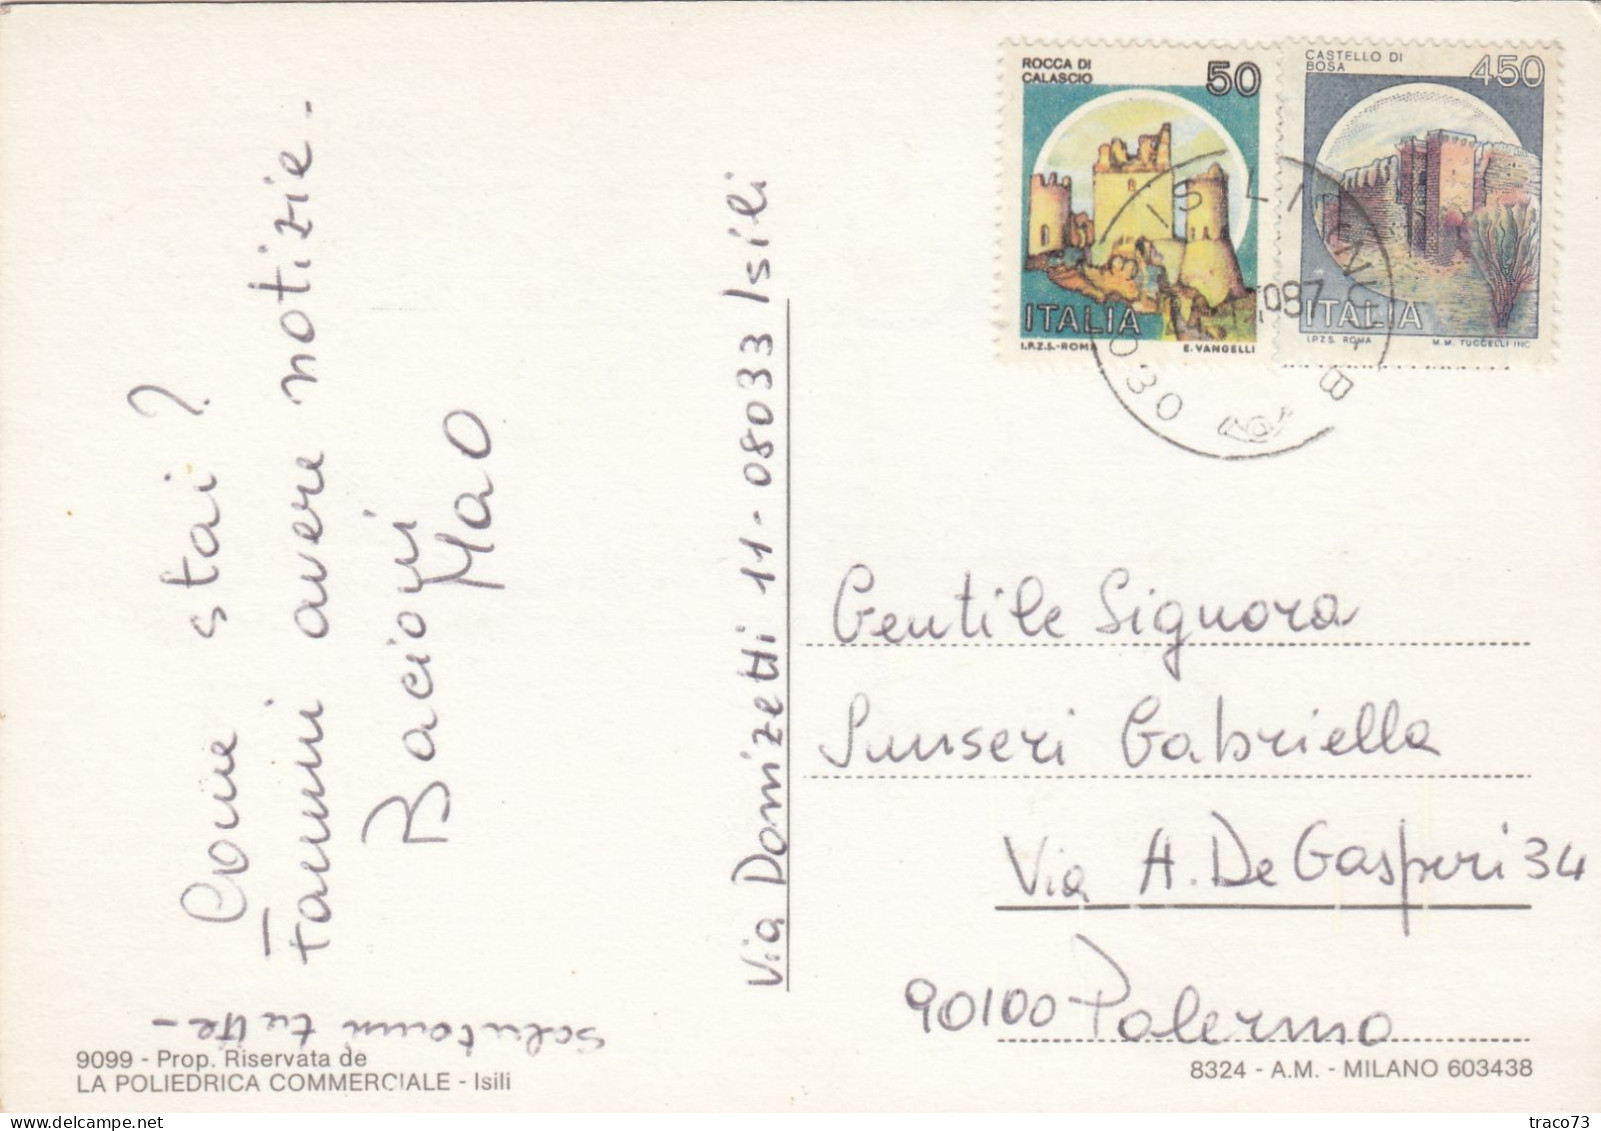 Come stai?
Fammi avere notizie.
Bacioni
Mao
Salutami tutte -
Via Donizetti 11 - 08033 Isili
9099 - Prop. Riservata de
LA POLIEDRICA COMMERCIALE - Isili
ROCCA DI
CALASCIO
50
ITALIA
I.P.Z.S.-ROMA E. VANGELLI
CASTELLO DI
BOSA
450
ITALIA
I.P.Z.S. ROMA M.M. TUCCELLI INC.
Gentile Signora
Sunseri Gabriella
Via A. De Gasperi 34
90100 Palermo
8324 - A.M. - MILANO 603438
traco73